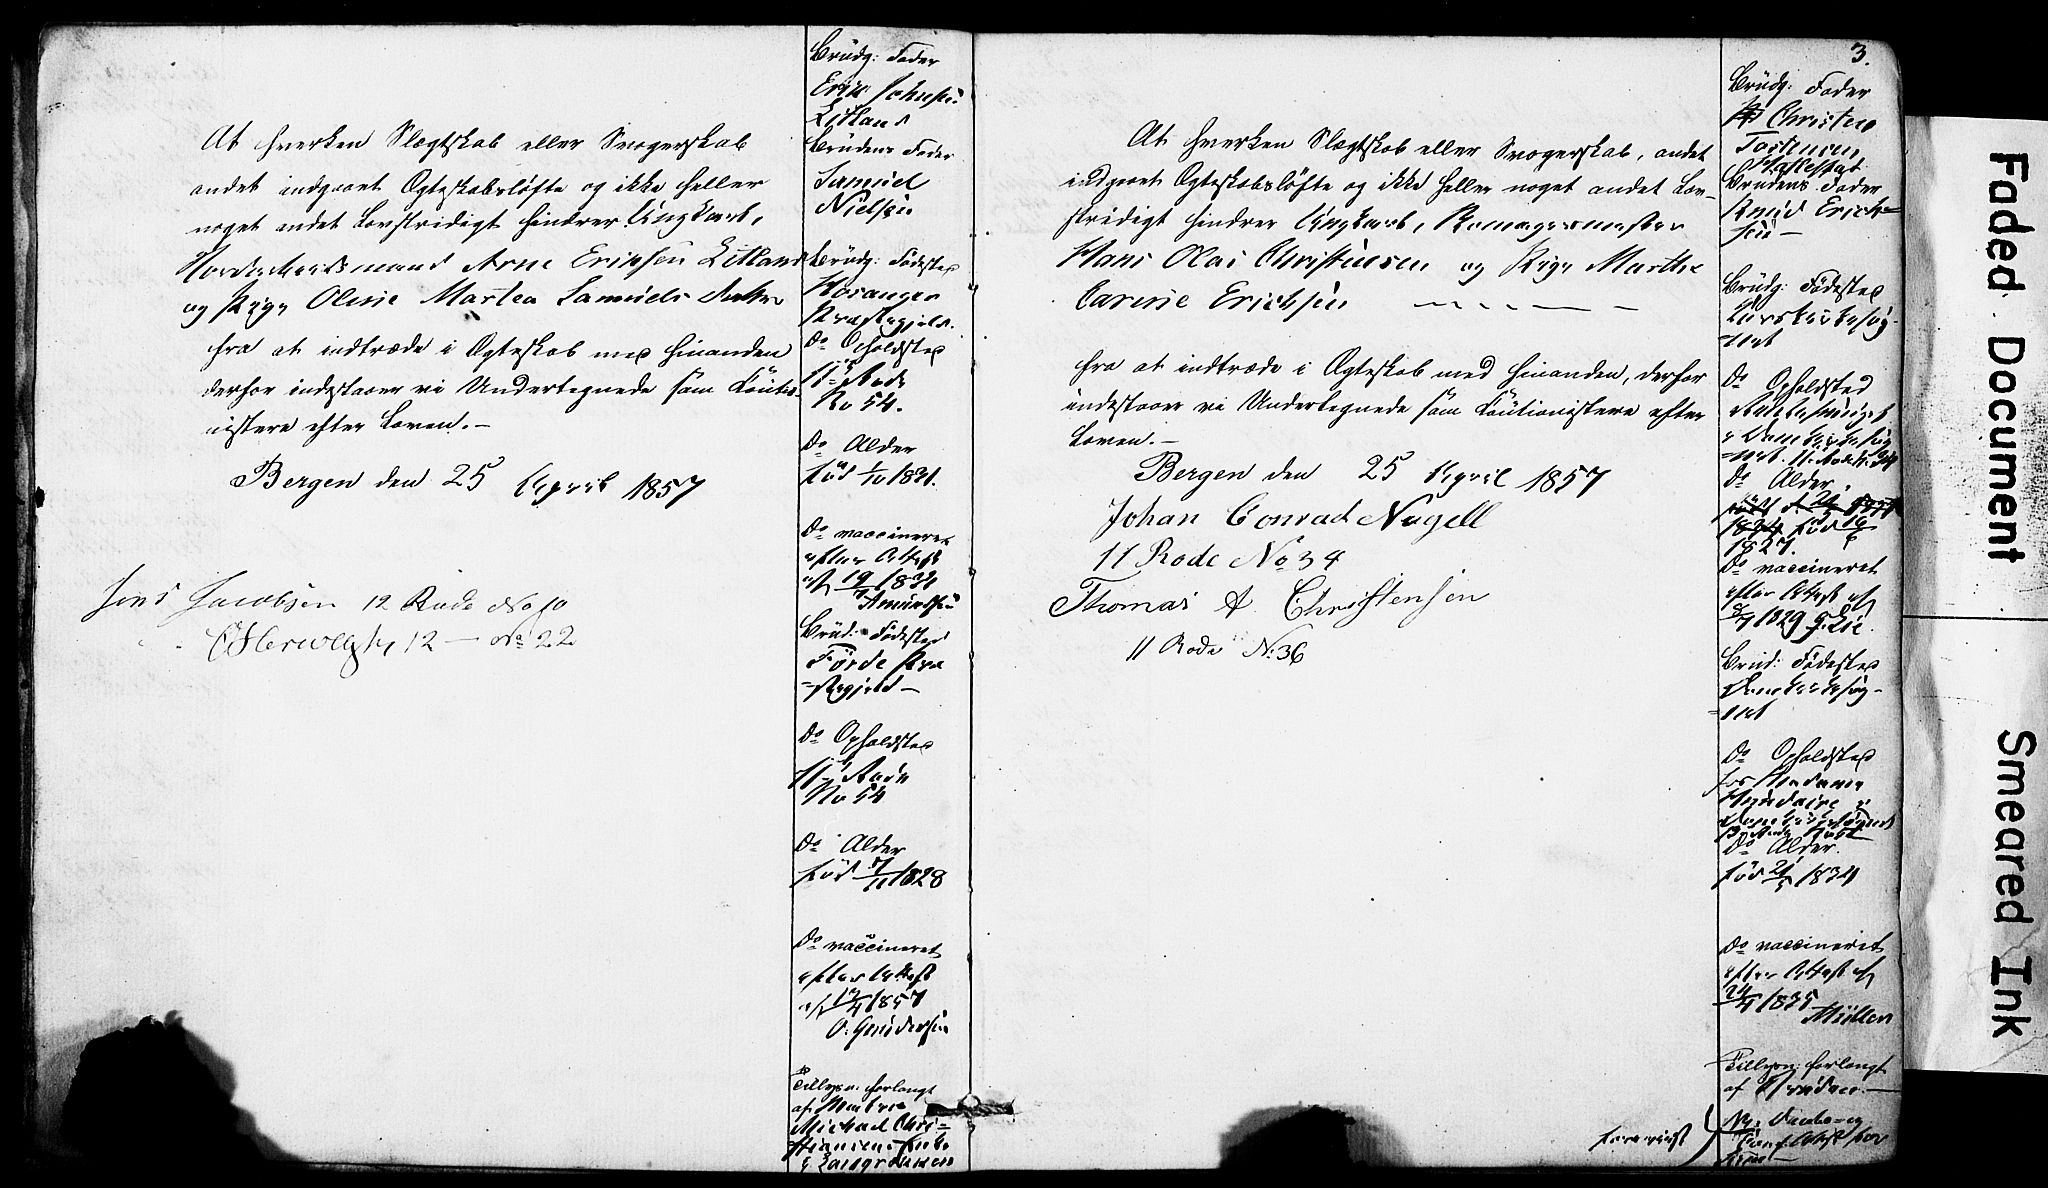 At hverken Slægtskab eller Svogerskab
andet indgaaet Ægteskabsløfte og ikke heller
noget andet Lovstridigt hindrer Ungkarl,
Arne Erichsen Litland
og Pige Olene Martea Samuels Datter
fra at indtræde i Ægteskab med hinanden
derfor indestaaer vi Undertegnede som Cautio-
nistere efter Loven.—
Bergen den 25 April 1857
Jens Jacobsen 12 Rode No 10
12 — No 22
Brudg: Fader
Erik Johnsen
Litland
Brudens Fader
Samuel
Nielsen
Brudg: Fødested
Hosanger
Præstegjeld.
Do Opholdsted
11te Rode
No 54.
Do Alder
født 1/10 1831.
Do vaccineret
efter Attest
af 19/ 1832
Amundsen
Brud: Fødested
Førde Præ
=stegjeld —
Do Opholdsted
11te Rode
No 54
Do Alder
født 7/11 1828
Do vaccineret
efter Attest
af 1857
O. Gundersen
Tillysn: forlangt
af
Michael Chri=
stiansen
3.
At hverken Slægtskab eller Svogerskab, andet
indgaaet Ægteskabsløfte og ikke heller noget andet Lov-
stridigt hindrer Ungkarl,
Hans Olai Christensen og Pige Marthe
Carine Erichsen
fra at indtræde i Ægteskab med hinanden, derfor
indestaaer vi Undertegnede som Cautionistere efter
Loven.—
Bergen den 25 April 1857
Johan Conrad Nagell
11 Rode No 34
Thomas A Christensen
11 Rode No 36
Brudg: Fader
Christen
Brudens Fader
Knud Erich=
sen —
Brudg: Fødested
Korskirkesog-
net
Do Opholdsted
Domkirkesog
=net. 11 Rode No 34
Do Alder.
født 16/6
1827.
Do vaccineret
efter Attest af
1829
Brud: Fødested
Domkirkesog-
=net
Do Opholdsted
hos Madame
Do Alder.
født 21/5 1834
Do vaccineret
efter Attest af
24/4 1835
Müller
Tillysn: forlangt
af Bruden —
foreviist
Faded Document
Smeared Ink